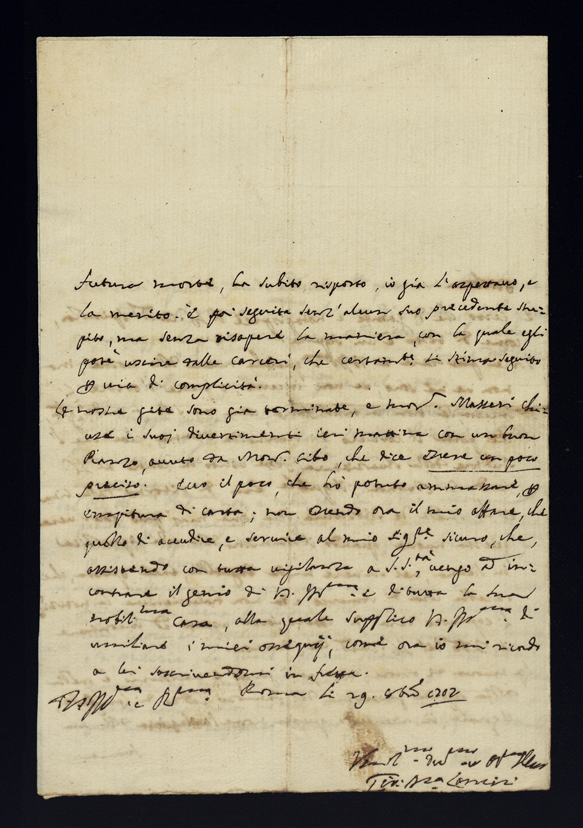 futura morte, ha subito risposto, io già l'aspettavo, e
la merito. È poi seguita senz'alcun suo precedente stre-
pito, ma senza risapere la maniera, con la quale egli
potè uscire dalle Carceri, che certamte. si stima seguito
p via di complicità.
Le nostre gite sono già terminate, e Monsr. Masseri chi-
use i suoi divertimenti ieri mattina con un buon
Pranzo, avuto da Monsr. Cibo, che dice essere un poco
preciso. Ecco il poco, che hò potuto ammassare p
empitura di carta; non essendo ora il mio affare, che
quello di accudire, e servire al mio sicuro, che,
assistendo con tutta vigilanza a S. S.tà, vengo ad in-
contrare il genio di V. e di tutta la sua
nobil.ma Casa, alla quale supplico V. di
umiliare i miei ossequij, come ora io mi ricordo
a lei soscrivendomi in fretta.
Roma li 29. 8bre 1702